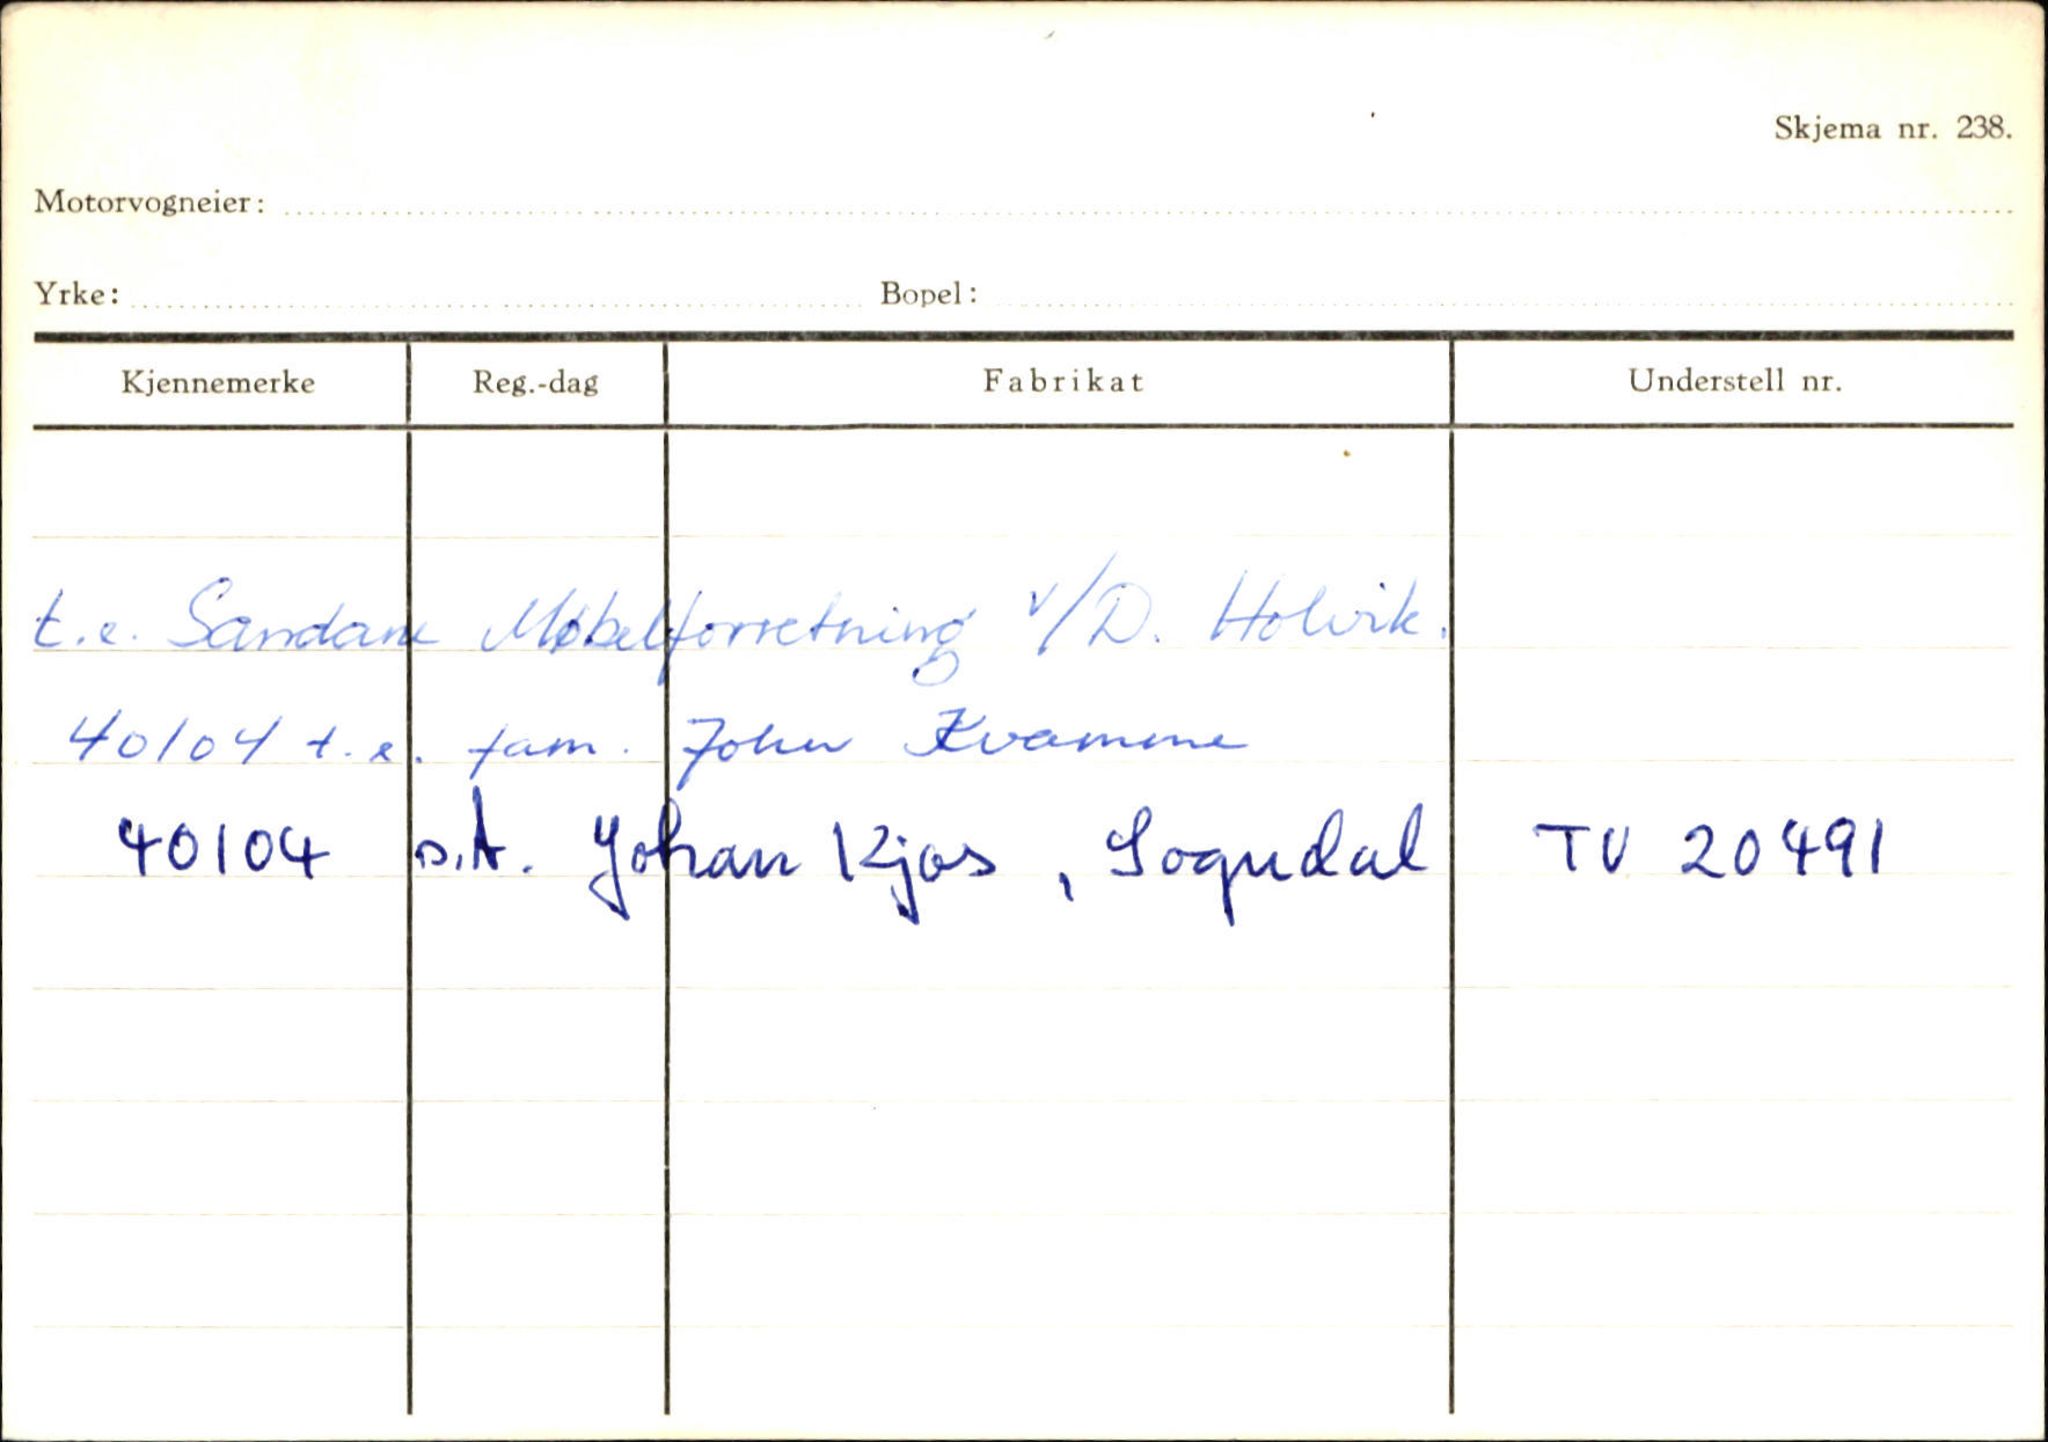 Skjema nr. 238.
Motorvogneier:
Yrke: Bopel:
Kjennemerke Reg.-dag Fabrikat Understell nr.
t.e. Sandane Møbelforretning v/D. Holvik.
40104 t.e. fam. John Kvamme
40104 s.A. Johan Kjos, Sogndal TV 20491